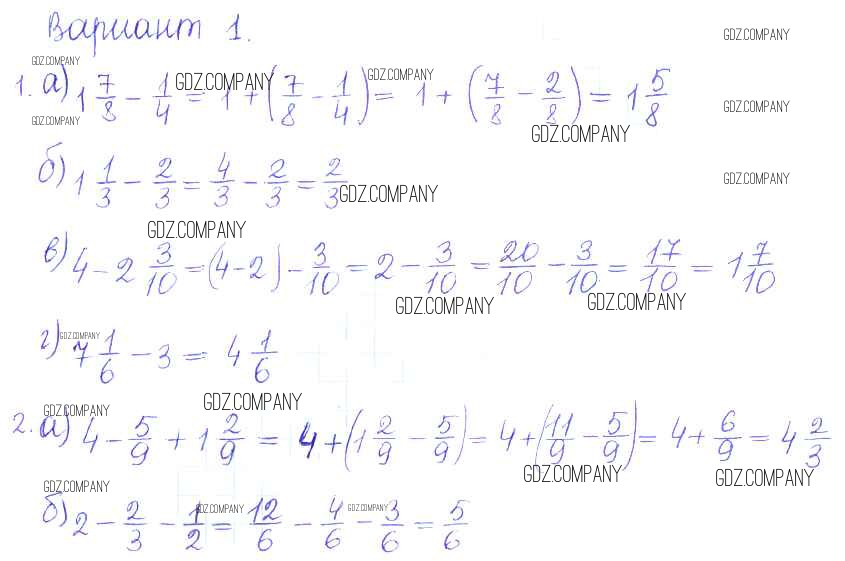 Вариант 1.
GDZ.COMPANY
GDZ.COMPANY
1. а) 1 7/8 - 1/4 = 1 + (7/8 - 1/4) = 1 + (7/8 - 2/8) = 1 5/8
GDZ.COMPANY GDZ.COMPANY GDZ.COMPANY
GDZ.COMPANY GDZ.COMPANY
б) 1 1/3 - 2/3 = 4/3 - 2/3 = 2/3
GDZ.COMPANY GDZ.COMPANY
GDZ.COMPANY
в) 4 - 2 3/10 = (4-2) - 3/10 = 2 - 3/10 = 20/10 - 3/10 = 17/10 = 1 7/10
GDZ.COMPANY GDZ.COMPANY
г) 7 1/6 - 3 = 4 1/6
GDZ.COMPANY
GDZ.COMPANY GDZ.COMPANY
2. а) 4 - 5/9 + 1 2/9 = 4 + (1 2/9 - 5/9) = 4 + (11/9 - 5/9) = 4 + 6/9 = 4 2/3
GDZ.COMPANY GDZ.COMPANY
GDZ.COMPANY
б) 2 - 2/3 - 1/2 = 12/6 - 4/6 - 3/6 = 5/6
GDZ.COMPANY GDZ.COMPANY